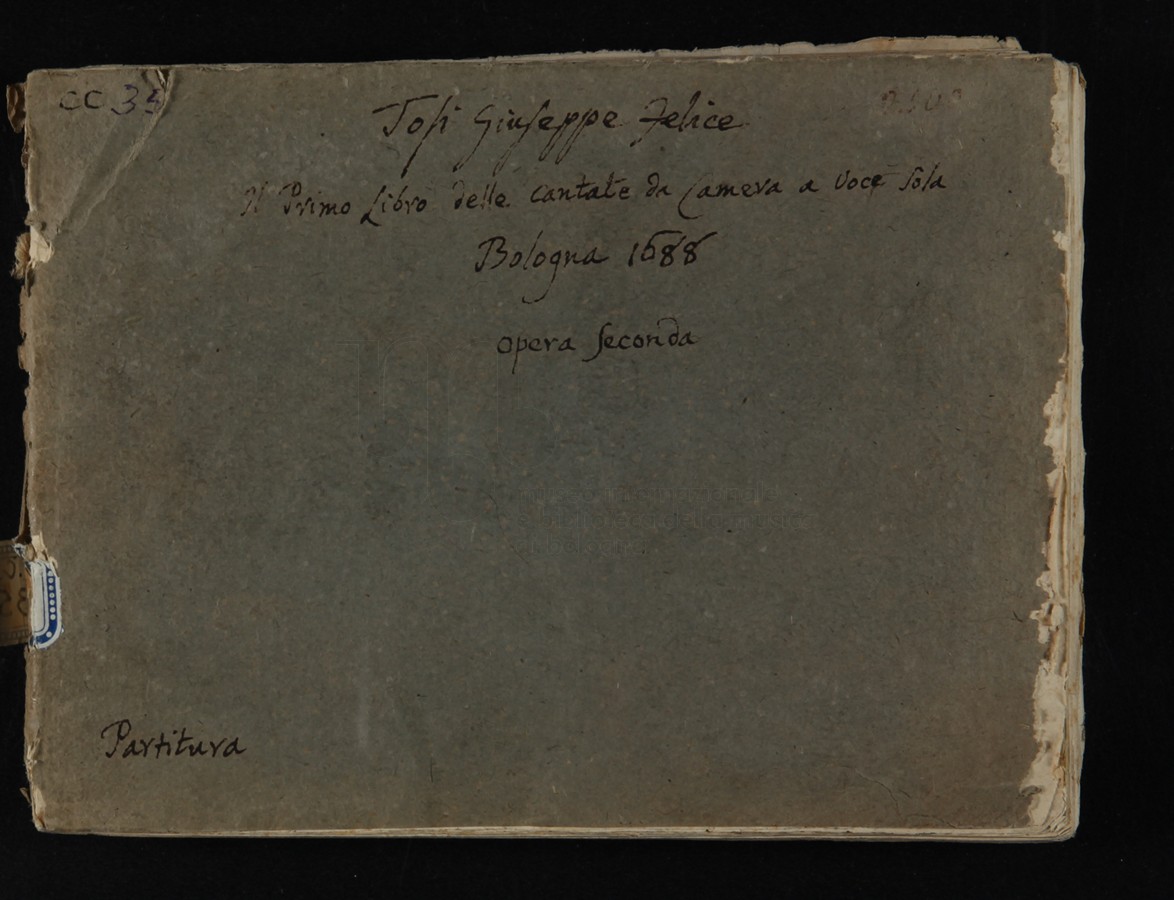 CC 35
Tosi Giuseppe Felice
Il Primo Libro delle cantate da Camera a Voce Sola
Bologna 1688
opera seconda
museo internazionale
e biblioteca della musica
di bologna
Partitura